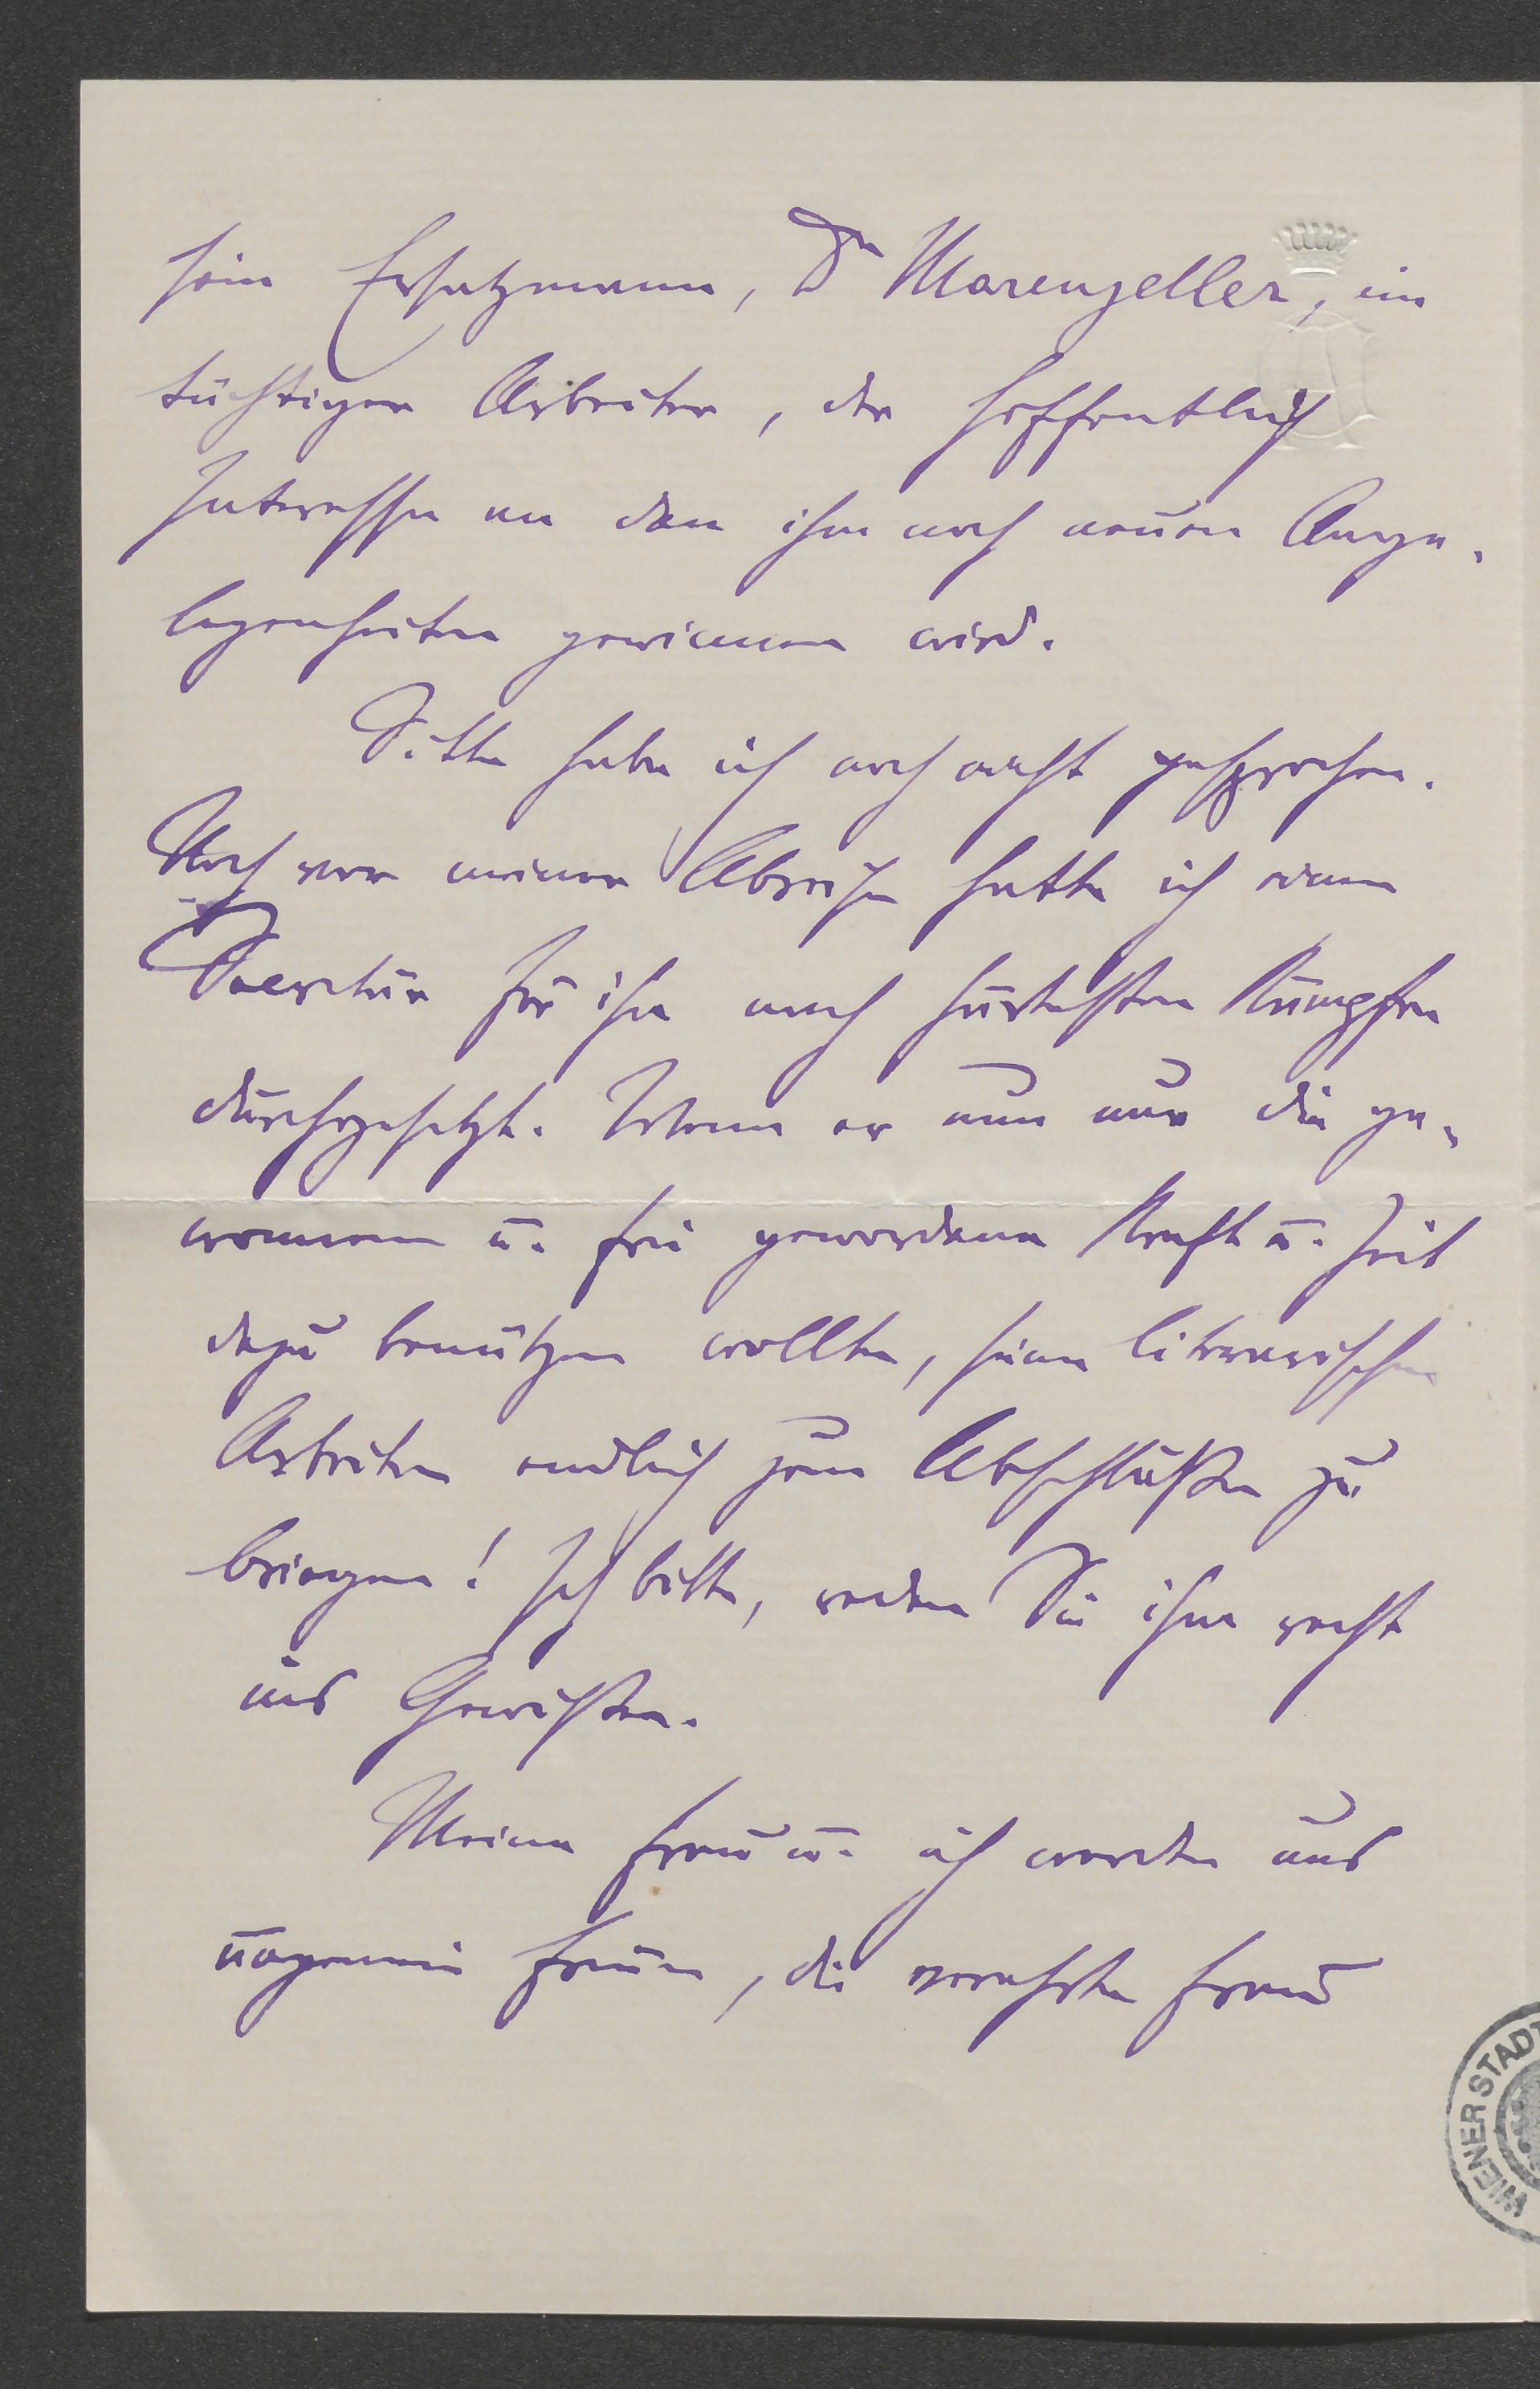 sein Ersatzmann, Dr Marenzeller, ein
tüchtiger Arbeiter, der hoffentlich
Interesse an den ihm noch neuen Ange-
legenheiten gewinnen wird.
Sitte habe ich noch nicht gesprochen.
Noch vor meiner Abreise hatte ich einen
für ihn nach härtesten Kämpfen
durchgesetzt. Wenn er nun nur die ge-
wonnene u. frei gewordene Kraft u. Zeit
dazu benützen wollte, seine literarischen
Arbeiten endlich zum Abschluße zu
bringen! Ich bitte, reden Sie ihm recht
ins Gewißen.
Meine Frau u. ich werden uns
ungemein freuen, die verehrte Frau
WIENER STADT